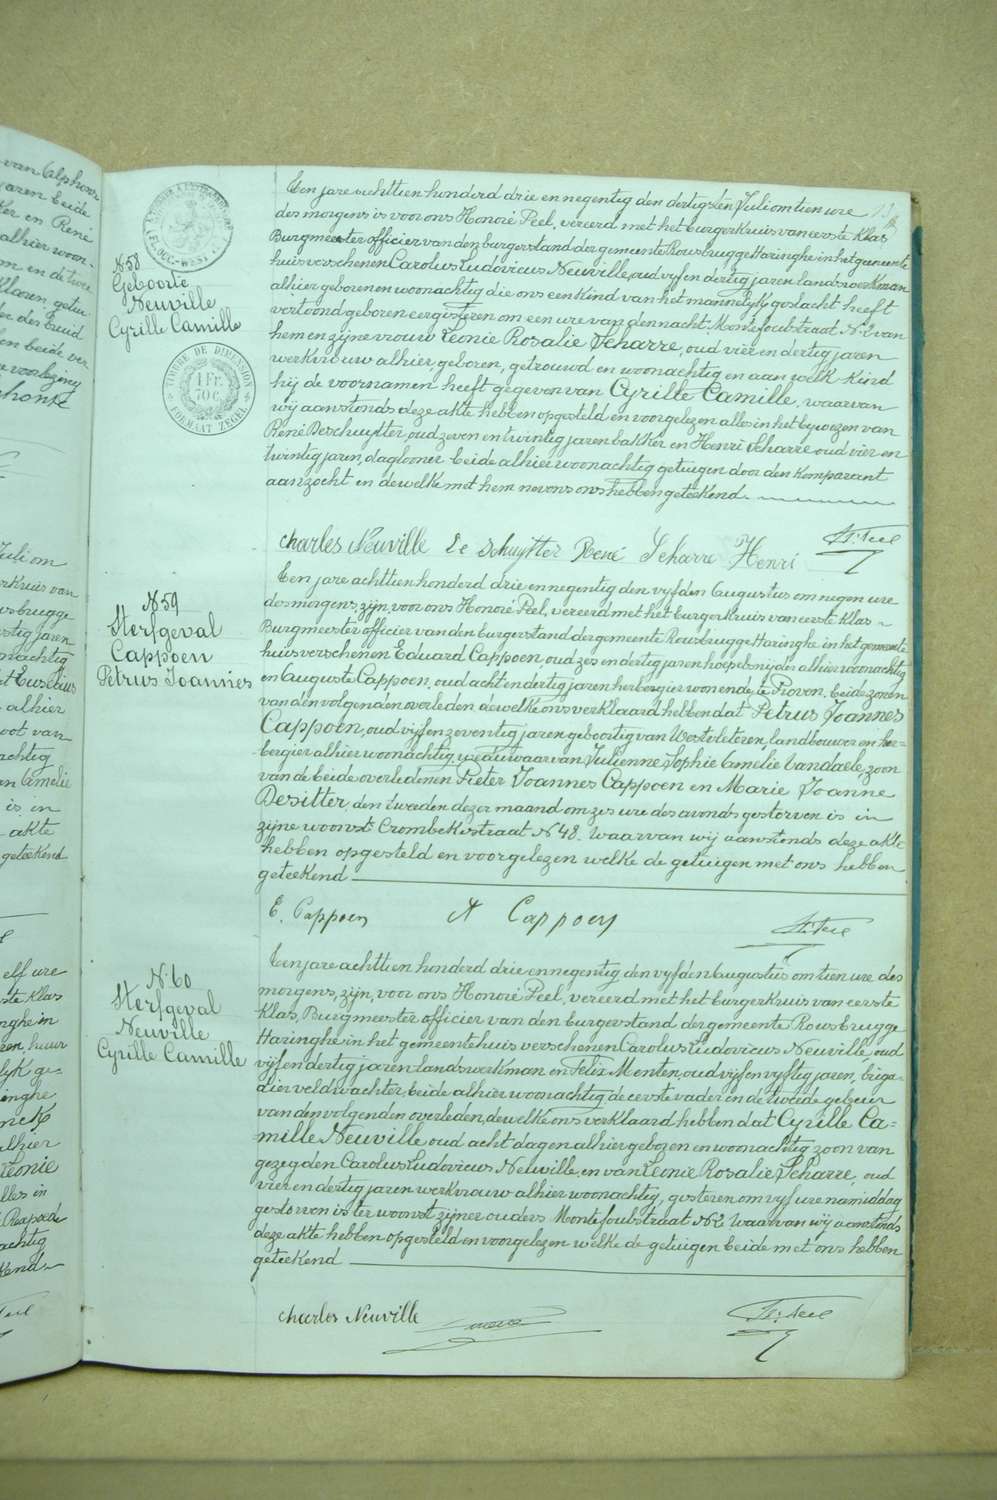 Een jare achttien honderd drie en negentig den dertigsten Juli om tien ure
des morgens is voor ons Honoré Peel, vereerd met het burgerkruis van eerste klas
Burgmeester officier van den burgerstand der gemeente Rousbrugge Haringhe in het gemeente
huis verschenen Carolus Ludovicus Neuville, oud vyf en dertig jaren, landswerkman
alhier geboren en woonachtig die ons een kind van het mannelyk geslacht heeft
vertoond geboren eergisteren om een ure van den nacht Montefoulstraat N. 2 van
hem en zijne vrouw Leonie Rosalie Seharre, oud vier en dertig jaren
werkvrouw alhier, geboren, getrouwd en woonachtig en aan welk kind
hij de voornamen heeft gegeven van Cyrille Camille, waarvan
wij aanstonds deze akte hebben opgesteld en voorgelezen alles in het bywezen van
René Deschuytter, oud zeven en twintig jaren bakker en Henri Seharre oud vier en
twintig jaren, daglooner beide alhier woonachtig getuigen door den komparant
aanzocht en dewelke met hem nevens ons hebben geteekend.
N. 58
Geboorte
Neuville
Cyrille Camille
TIMBRE DE DIMENSION
1 Fr.
70 C.
FORMAAT ZEGEL
charles Neuville De Schuytter René Seharre Henri H. Peel
N. 59
Sterfgeval
Cappoen
Petrus Joannes
Een jare achttien honderd drie en negentig den vyfden Augustus om negen ure
des morgens, zijn, voor ons Honoré Peel, vereerd met het burgerkruis van eerste klas
Burgmeester officier van den burgerstand der gemeente Rousbrugge Haringhe in het gemeente
huis verschenen Eduard Cappoen, oud zes en dertig jaren hoefsmijder alhier woonachtig
en Auguste Cappoen, oud acht en dertig jaren herbergier wonende te Proven, beide zonen
van den volgenden overleden dewelke ons verklaard hebben dat Petrus Joannes
Cappoen, oud vijf en zeventig jaren geboortig van Westvleteren, landbouwer en her-
bergier alhier woonachtig, weduwaar van Julienne Sophie Amelie Vandaele, zoon
van de beide overledenen Pieter Joannes Cappoen en Marie Joanne
Desitter, den tweeden dezer maand om zes ure des avonds gestorven is in
zijne woonst Crombekstraat N. 48. Waarvan wij aanstonds deze akte
hebben opgesteld en voorgelezen welke de getuigen met ons hebben
geteekend
E. Cappoen A Cappoen H. Peel
N. 60
Sterfgeval
Neuville
Cyrille Camille
Een jare achttien honderd drie en negentig den vyfden Augustus om tien ure des
morgens, zijn, voor ons Honoré Peel, vereerd met het burgerkruis van eerste
klas, Burgmeester officier van den burgerstand der gemeente Rousbrugge
Haringhe in het gemeentehuis verschenen Carolus Ludovicus Neuville, oud
vijf en dertig jaren landswerkman en Felix Monten, oud vyf en vyftig jaren, briga-
dier veldwachter, beide alhier woonachtig de eerste vader en de tweede gebuur
van den volgenden overleden, dewelke ons verklaard hebben dat Cyrille Ca-
mille Neuville oud acht dagen alhier geboren en woonachtig zoon van
gezegden Carolus Ludovicus Neuville, en van Leonie Rosalie Seharre, oud
vier en dertig jaren werkvrouw alhier woonachtig, gisteren om vyf ure namiddag
gestorven is ter woonst zijner ouders Montefoulstraat N. 2 Waarvan wy aanstonds
deze akte hebben opgesteld en voorgelezen welke de getuigen beide met ons hebben
geteekend
charles Neuville H. Peel